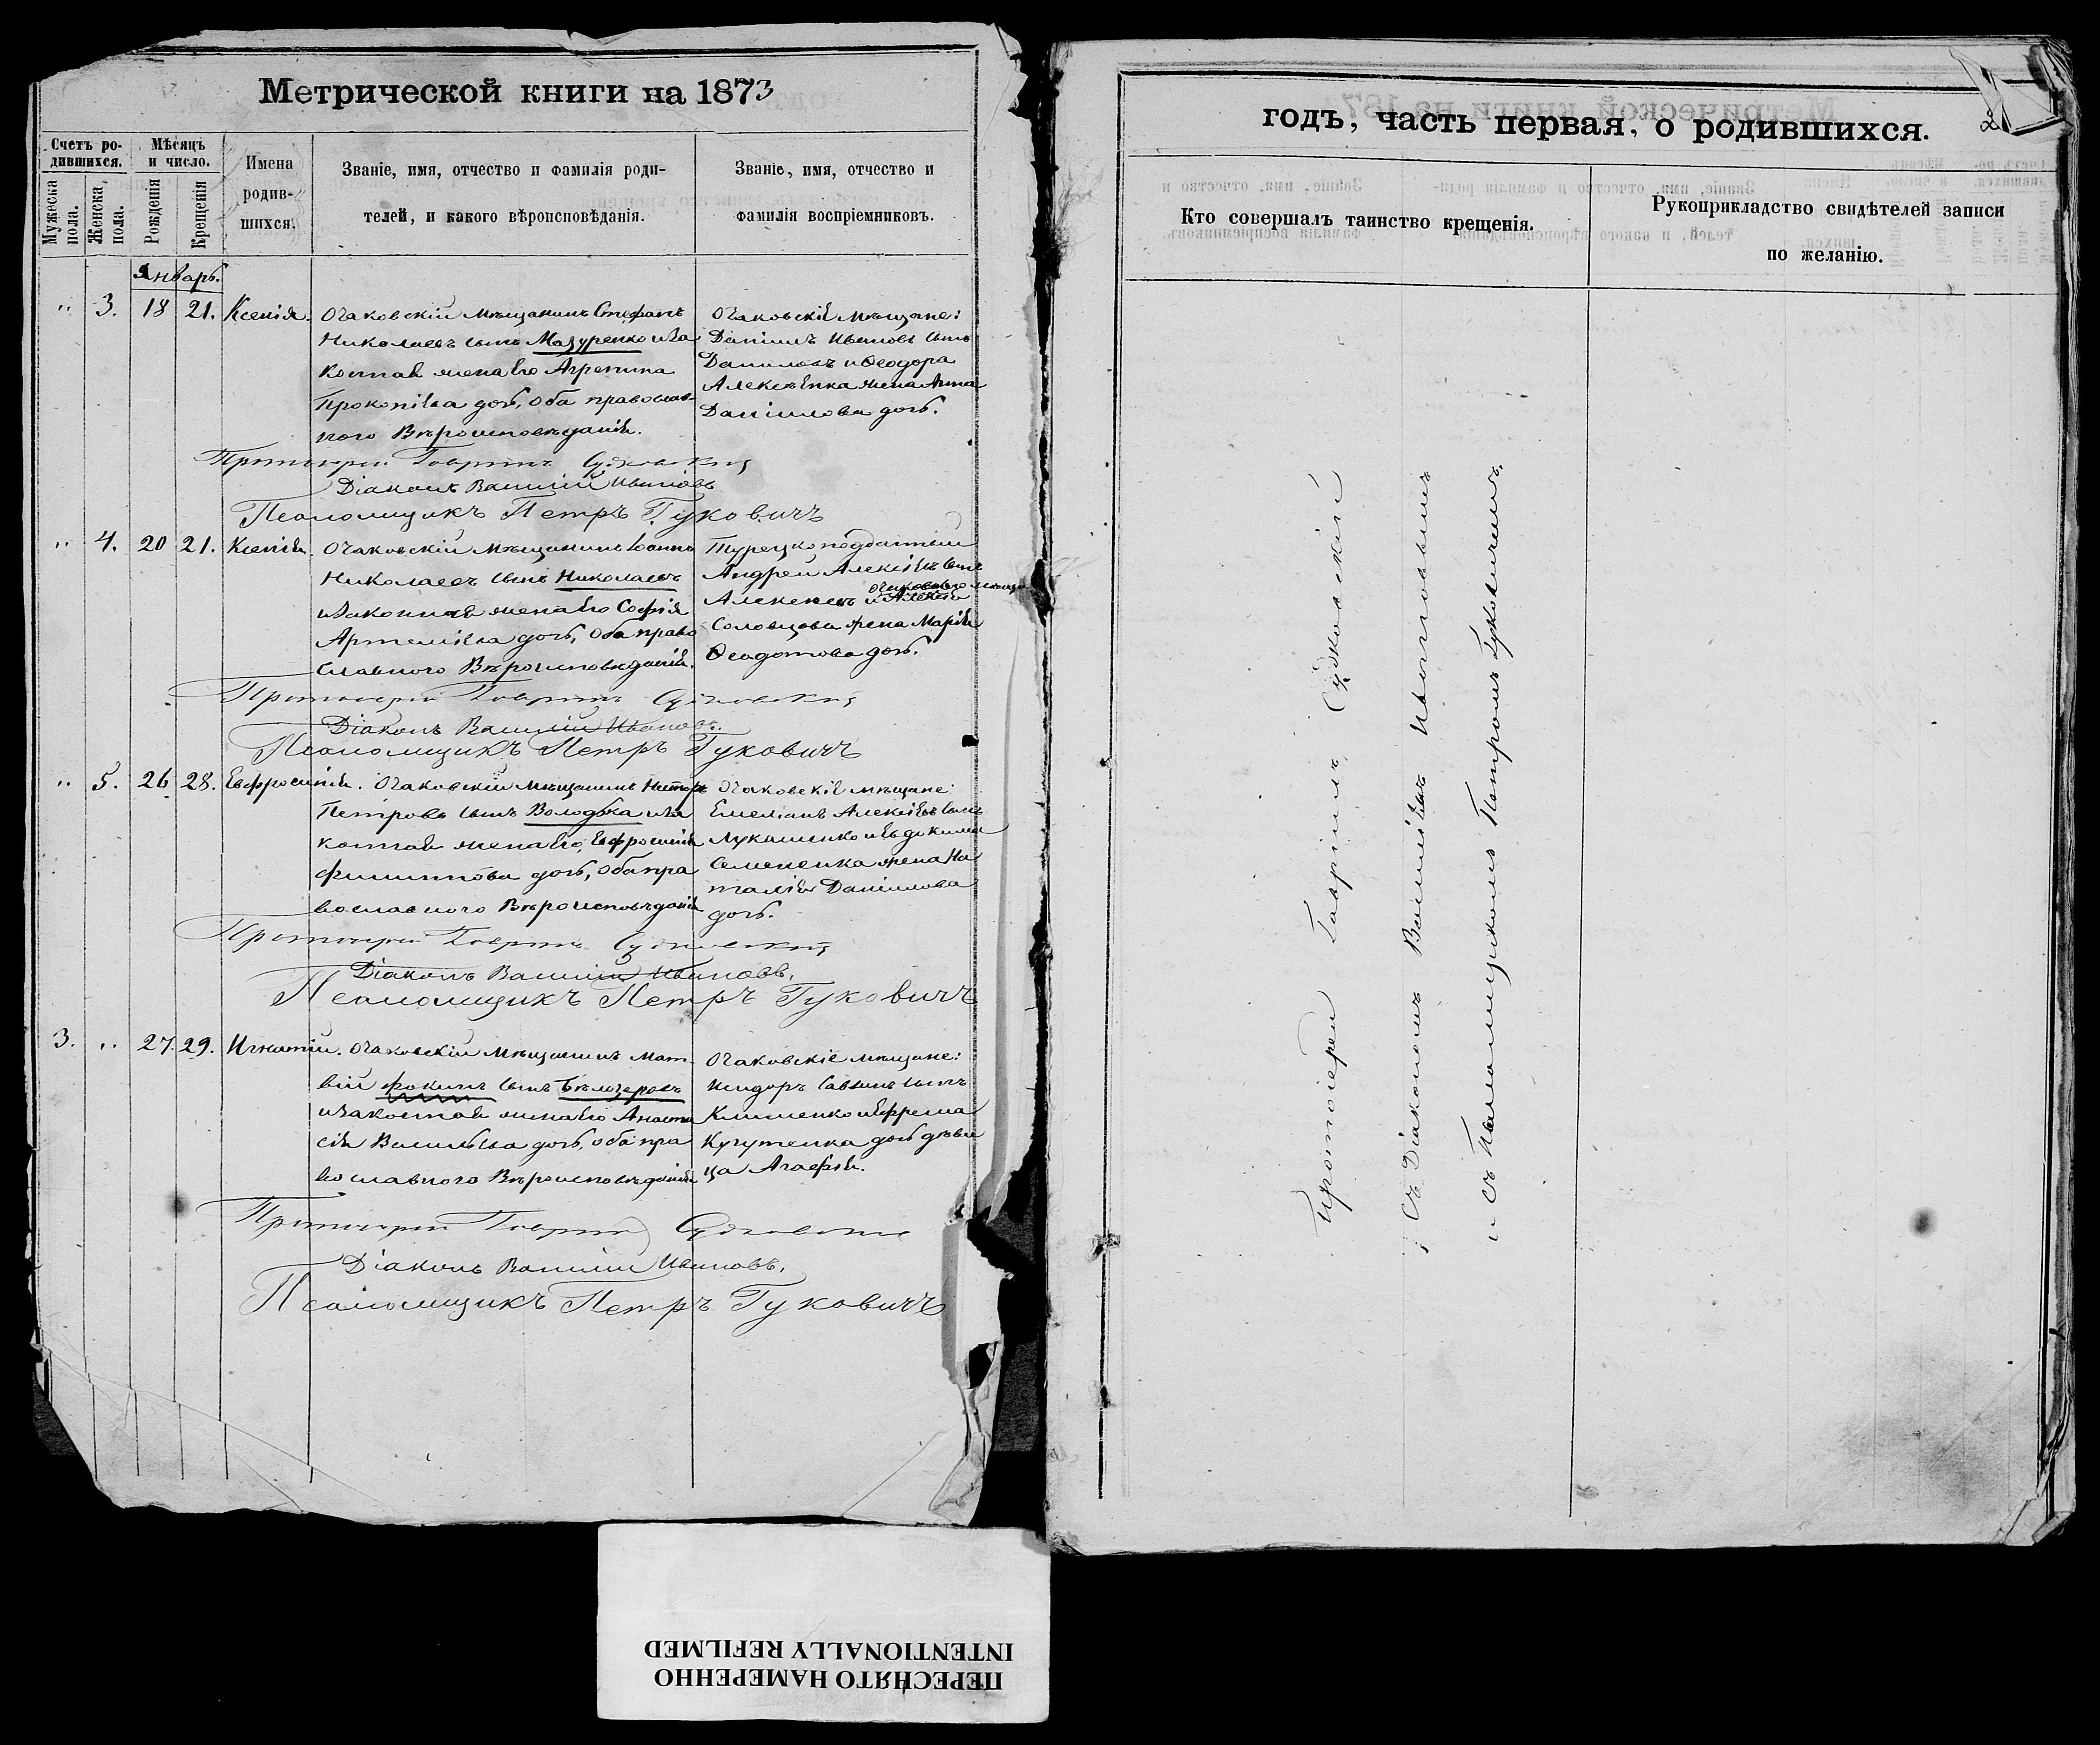 Метрической книги на 1873
Счетъ ро-
дившихся.
Мужеска
пола.
Женска,
пола.
Мѣсяцъ
и число.
Рожденія
Крещенія
Имена
родив-
шихся.
Званіе, имя, отчество и фамилія роди-
телей, и какого вѣроисповѣданія.
Званіе, имя, отчество и
фамилія воспріемниковъ.
Январь.
" 3. 18 21. Ксенія.
Очаковскій мѣщанинъ Стефанъ
Николаевъ сынъ Мазуренко и за
конная жена его Агрепина
Прокопіева дочь, оба православ-
ного Вѣроисповѣданія.
Очаковскіе мѣщане:
Даніилъ Ивановъ сынъ
Даниловъ и Ѳеодора
Алексѣенка жена Анна
Даніилова дочь.
Протоіерей Гавріилъ Судковскій
Діаконъ Василій Ивановъ
Псаломщикъ Петръ Гуковичъ
" 4. 20 21. Ксенія.
Очаковскій мѣщанинъ Іоаннъ
Николаевъ сынъ Николаевъ
и законная жена его Софія
Артеміева дочь, оба право
славного Вѣроисповѣданія.
Турецкоподданный
Андрей Алексіевъ сынъ
Очаковского мѣщан
Алексеевъ и Алексія
Соловцова жена Марія
Ѳеодотова дочь.
Протоіерей Гавріилъ Судковскій
Діаконъ Василій Ивановъ.
Псаломщикъ Петръ Гуковичъ
" 5. 26 28. Евфросинія.
Очаковскій мѣщанинъ
Петровъ сынъ Володька и за
конная жена его, Евфросинія
Филиппова дочь, оба пра
вославного Вѣроисповѣданія
Очаковскіе мѣщане:
Емеліанъ Алексіевъ сынъ
Лукашенко и Евдокима
Семененка жена На
талія Даніилова
дочь.
Протоіерей Гавріилъ Судковскій
Діаконъ Василій Ивановъ.
Псаломщикъ Петръ Гуковичъ
3. " 27. 29. Игнатій.
Очаковскій мѣщанинъ Мат-
вій Фокинъ сынъ Бѣлозеровъ
и законная жена его Анаста
сія Васильева дочь, оба пра
вославного Вѣроисповѣданія
Очаковскіе мѣщане:
Исидоръ Саввинъ сынъ
Клименко и Ефрема
Кучутенка дочь дѣви
ца Агафія.
Протоіерей Гавріилъ Судковскій
Діаконъ Василій Ивановъ.
Псаломщикъ Петръ Гуковичъ
годъ, часть первая, о родившихся.
2
Кто совершалъ таинство крещенія.
Рукоприкладство свидѣтелей записи
по желанію.
Протоіерей Гавріилъ Судковскій
съ Діакономъ Василіемъ Ивановымъ
и съ Псаломщикомъ Петромъ Гуковичемъ.
ПЕРЕСНЯТО НАМЕРЕННО
INTENTIONALLY REFILMED